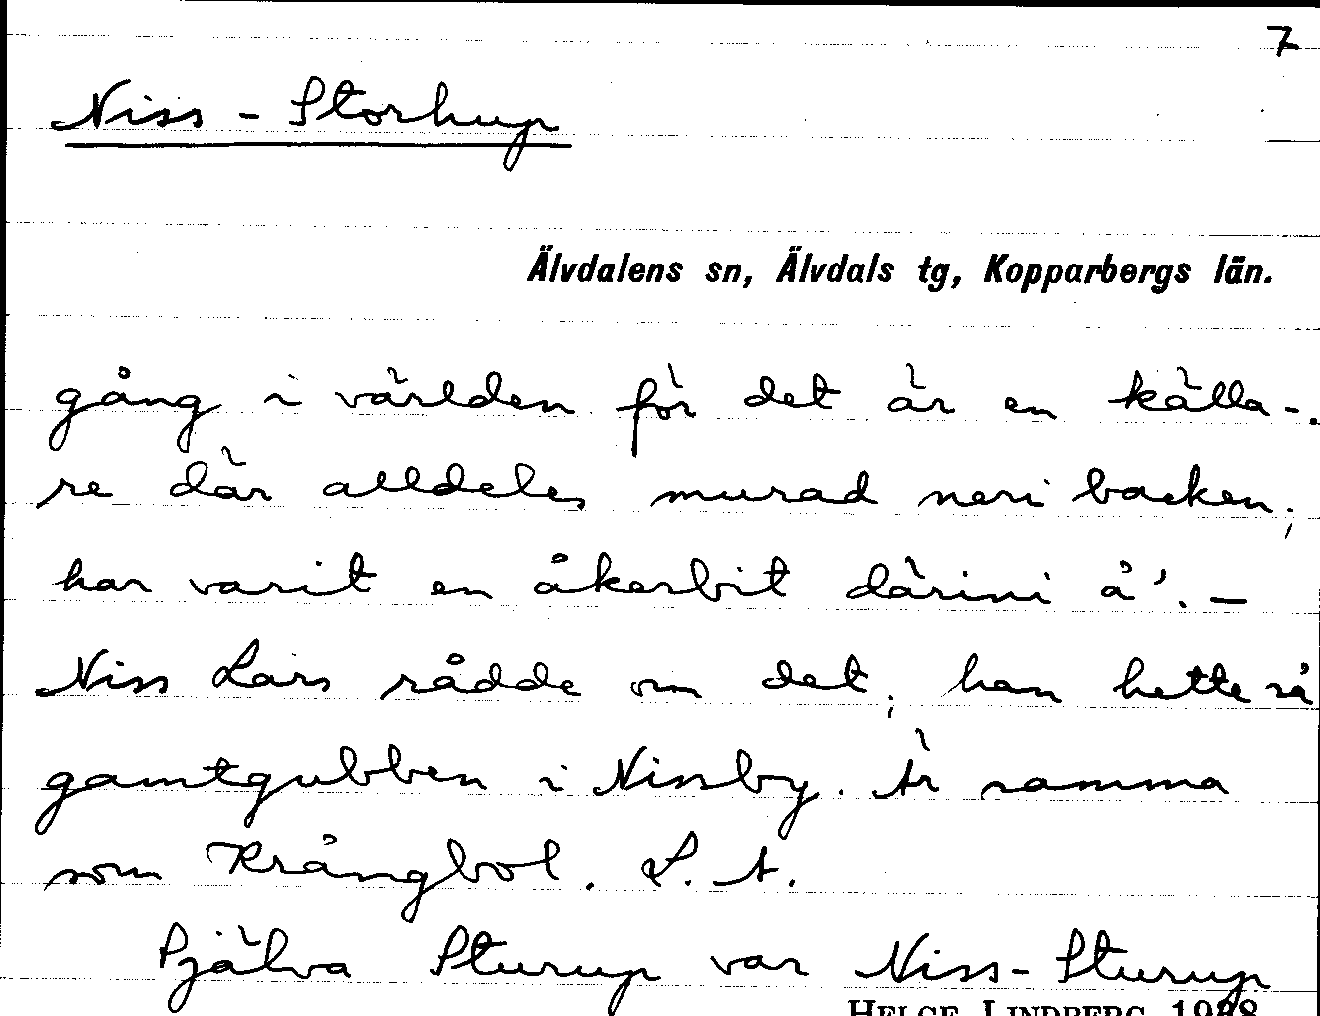 7
Niss - Storhup
Älvdalens sn, Älvdals tg, Kopparbergs län.
gång i världen för det är en källa-
re där alldeles murad neri backen;
har varit en åkerbit därini å'. -
Niss Lars rådde om det; han hette så
gamtgubben i Nissby. Är samma
som Krångbol. L. A.
Själva Sturup var Niss-Sturup
HELGE LINDBERG 1988